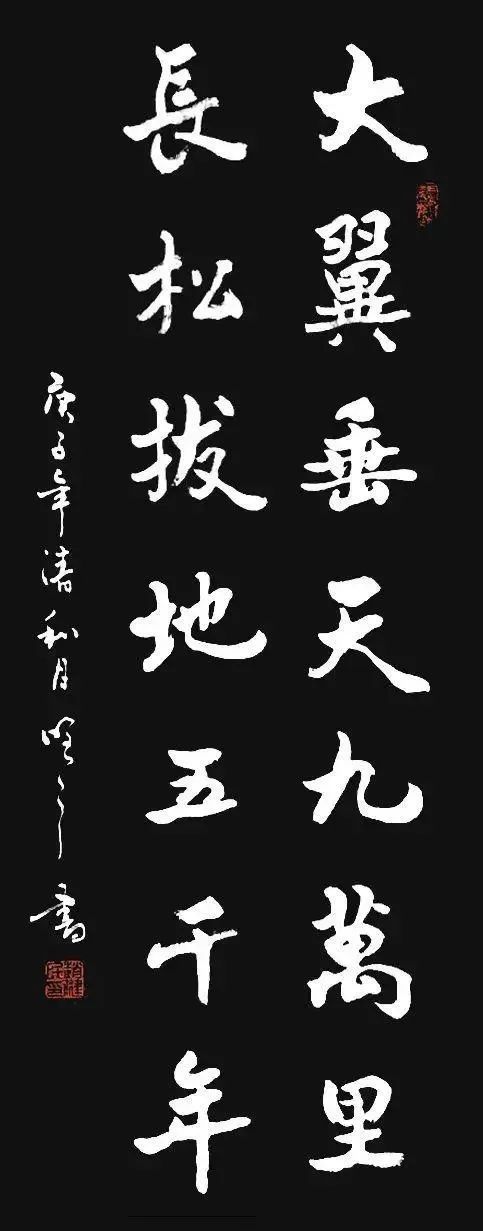 大翼垂天九萬里
長松拔地五千年
庚子年清和月 書